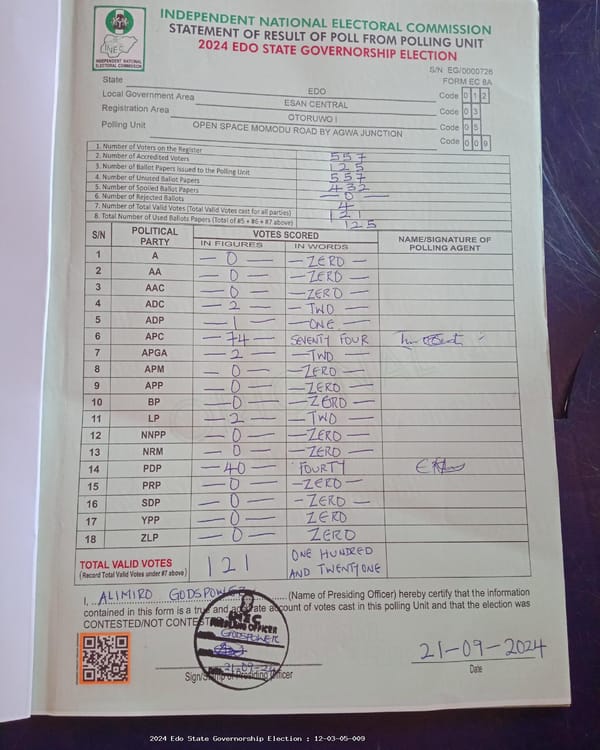 INDEPENDENT NATIONAL ELECTORAL COMMISSION
STATEMENT OF RESULT OF POLL FROM POLLING UNIT
2024 EDO STATE GOVERNORSHIP ELECTION
INEC
INDEPENDENT NATIONAL
ELECTORAL COMMISSION
S/N EG/0000726
FORM EC 8A
State EDO Code 1 2
Local Government Area ESAN CENTRAL Code 0 3
Registration Area OTORUWO I Code 0 5
Polling Unit OPEN SPACE MOMODU ROAD BY AGWA JUNCTION Code 0 0 9
1. Number of Voters on the Register 557
2. Number of Accredited Voters 125
3. Number of Ballot Papers Issued to the Polling Unit 557
4. Number of Unused Ballot Papers 432
5. Number of Spoiled Ballot Papers — 0 —
6. Number of Rejected Ballots 4
7. Number of Total Valid Votes (Total Valid Votes cast for all parties) 121
8. Total Number of Used Ballots Papers (Total of #5 + #6 + #7 above) 125
S/N POLITICAL PARTY VOTES SCORED NAME/SIGNATURE OF POLLING AGENT
IN FIGURES IN WORDS
1 A — 0 — — ZERO —
2 AA — 0 — — ZERO —
3 AAC — 0 — — ZERO —
4 ADC — 2 — — TWO —
5 ADP — 1 — — ONE. —
6 APC — 74 — SEVENTY FOUR
7 APGA — 2 — — TWO —
8 APM — 0 — — ZERO —
9 APP — 0 — — ZERO —
10 BP — 0 — — ZERO —
11 LP — 2 — — TWO —
12 NNPP — 0 — — ZERO —
13 NRM — 0 — — ZERO —
14 PDP — 40 — FOURTY
15 PRP — 0 — — ZERO —
16 SDP — 0 — — ZERO —
17 YPP — 0 — ZERO
18 ZLP — 0 — ZERO
TOTAL VALID VOTES 121 ONE HUNDRED AND TWENTYONE
(Record Total Valid Votes under #7 above)
I, ALIMIRO GODSPOWER (Name of Presiding Officer) hereby certify that the information
contained in this form is a true and accurate account of votes cast in this polling Unit and that the election was
CONTESTED/NOT CONTESTED
INEC
PRESIDING OFFICER
GODSPOWER
21-09-24
Sign/Stamp of Presiding Officer
21-09-2024
Date
2024 Edo State Governorship Election : 12-03-05-009